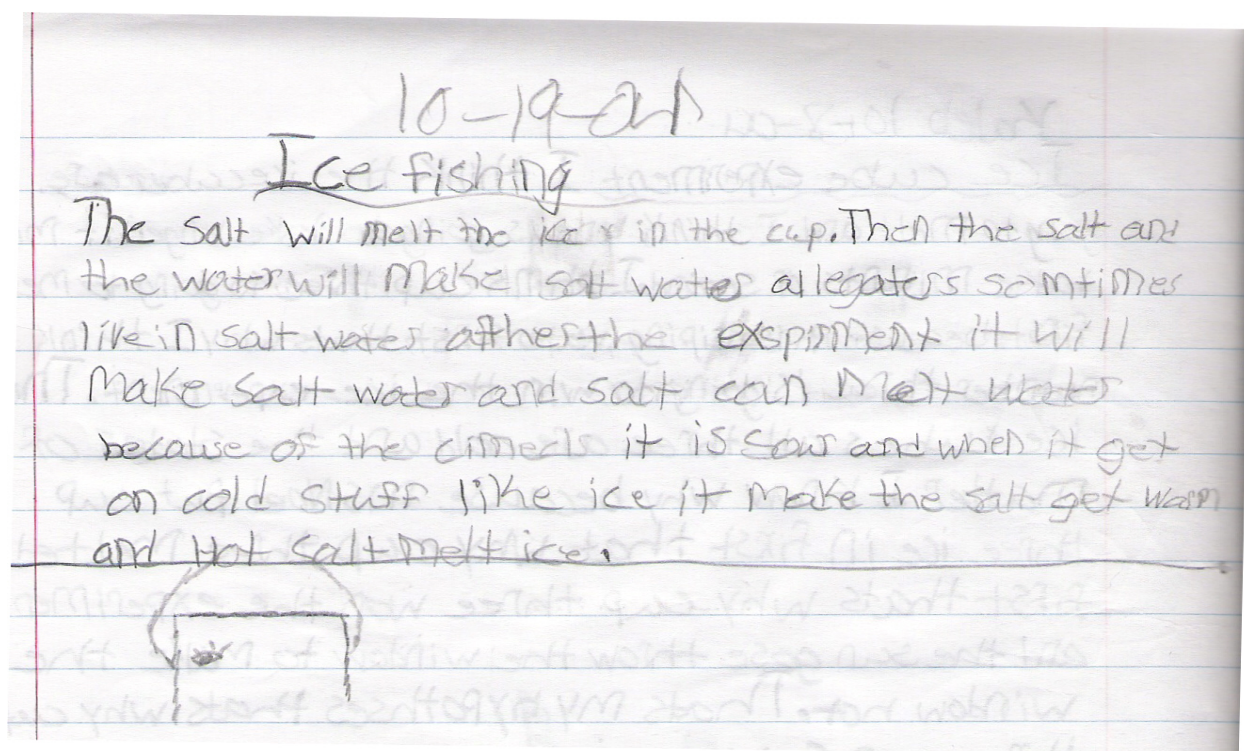 10-19-01
Ice fishing
The Salt will melt the ice in the cup. Then the salt and
the water will make salt water allegaters somtimes
live in salt water after the exspirment it will
Make salt water and salt can Melt water
because of the cimecls it is sour and when it get
on cold stuff like ice it make the salt get warm
and Hot salt melt ice.